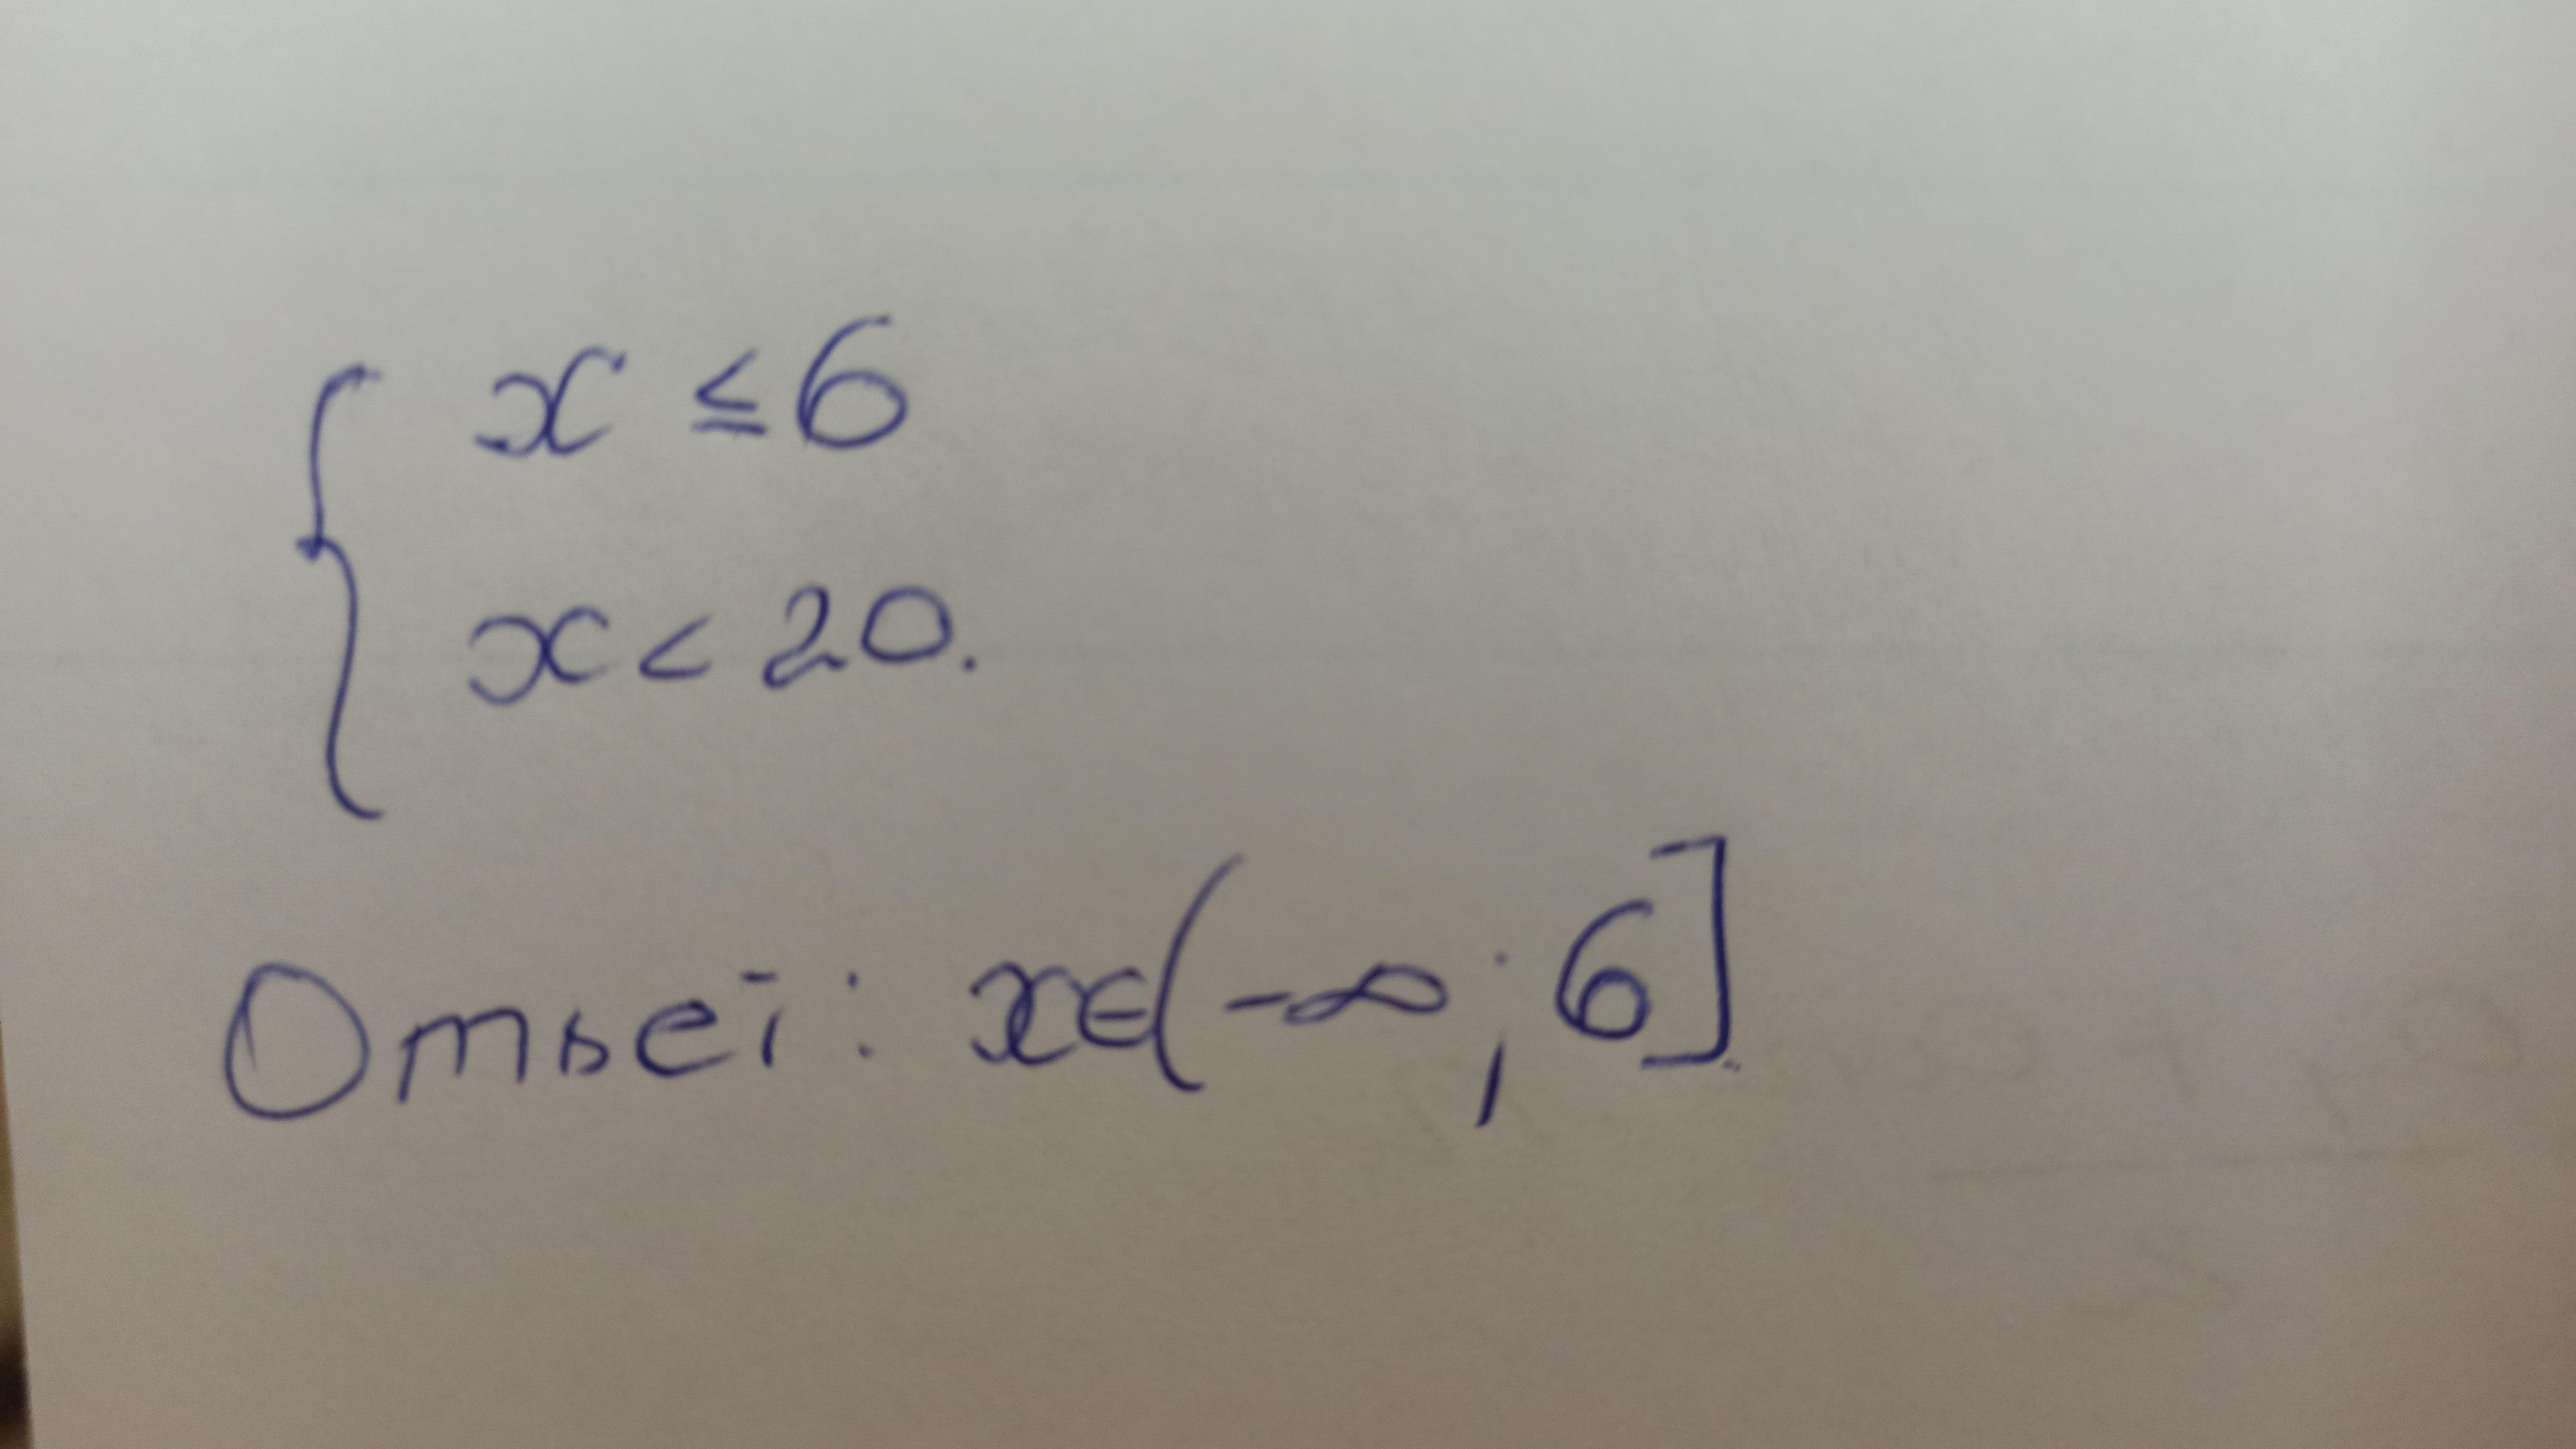 { x ≤ 6
x < 20.
Ответ: x∈(-∞; 6]